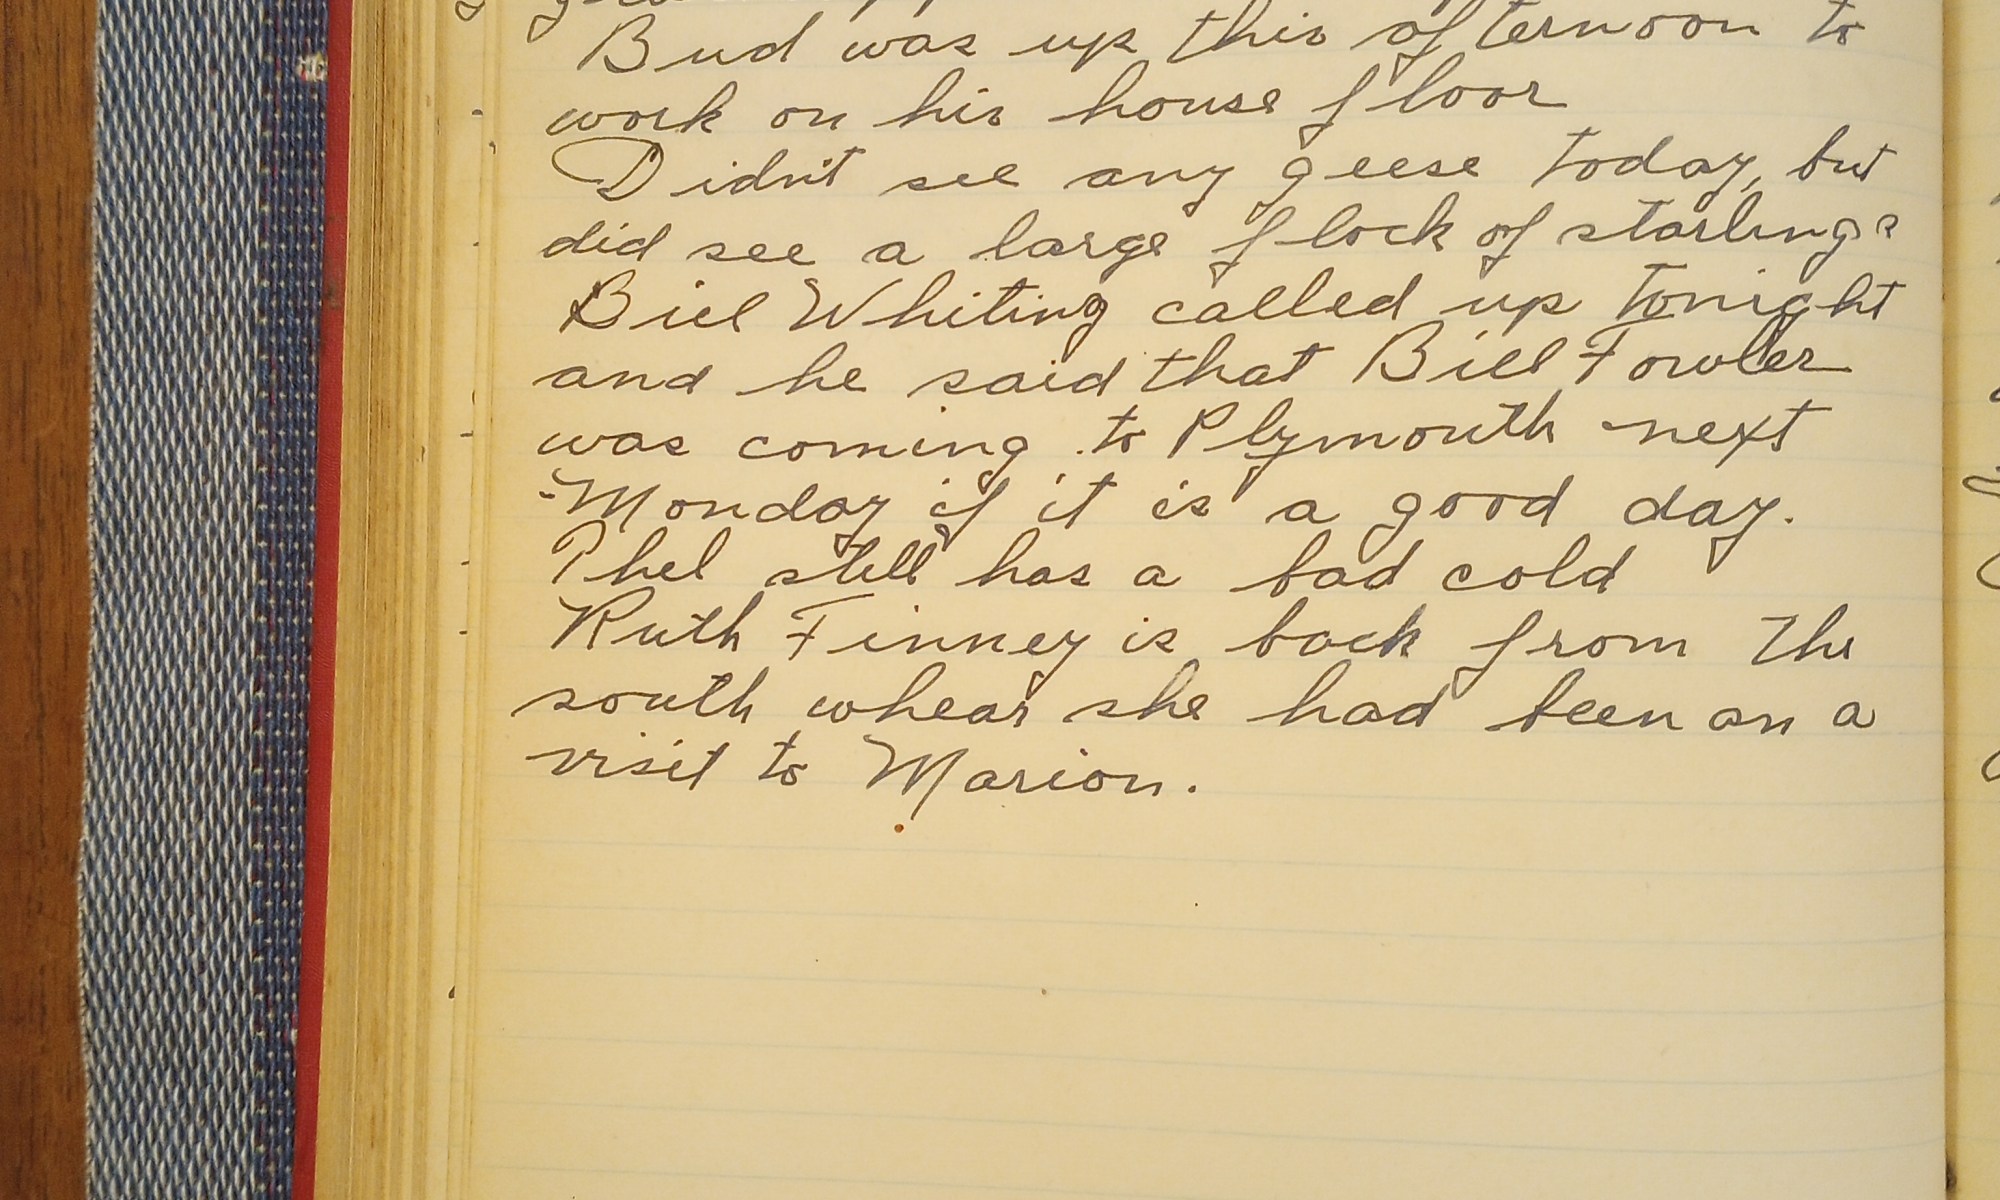 Bud was up this afternoon to
work on his house floor
Didn't see any geese today, but
did see a large flock of starlings
Bill Whiting called up tonight
and he said that Bill Fowler
was coming to Plymouth next
Monday if it is a good day.
Phel still has a bad cold
Ruth Finney is back from the
south whear she had been on a
visit to Marion.